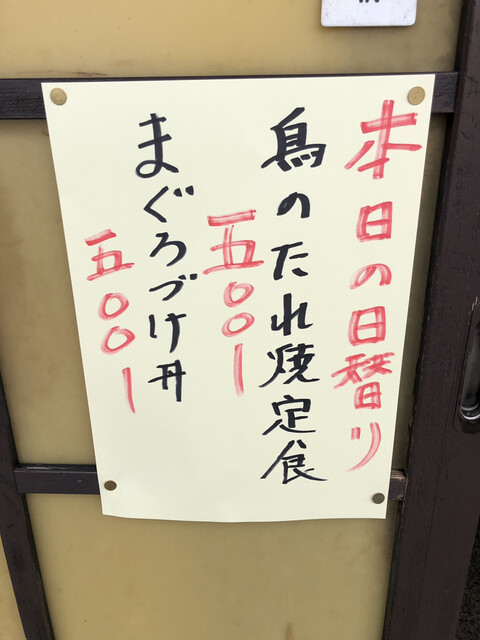 本日の日替り
鳥のたれ焼定食
一五〇〇ー
まぐろづけ丼
一五〇〇ー